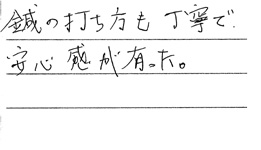 鍼の打ち方も丁寧で
安心感が有った。